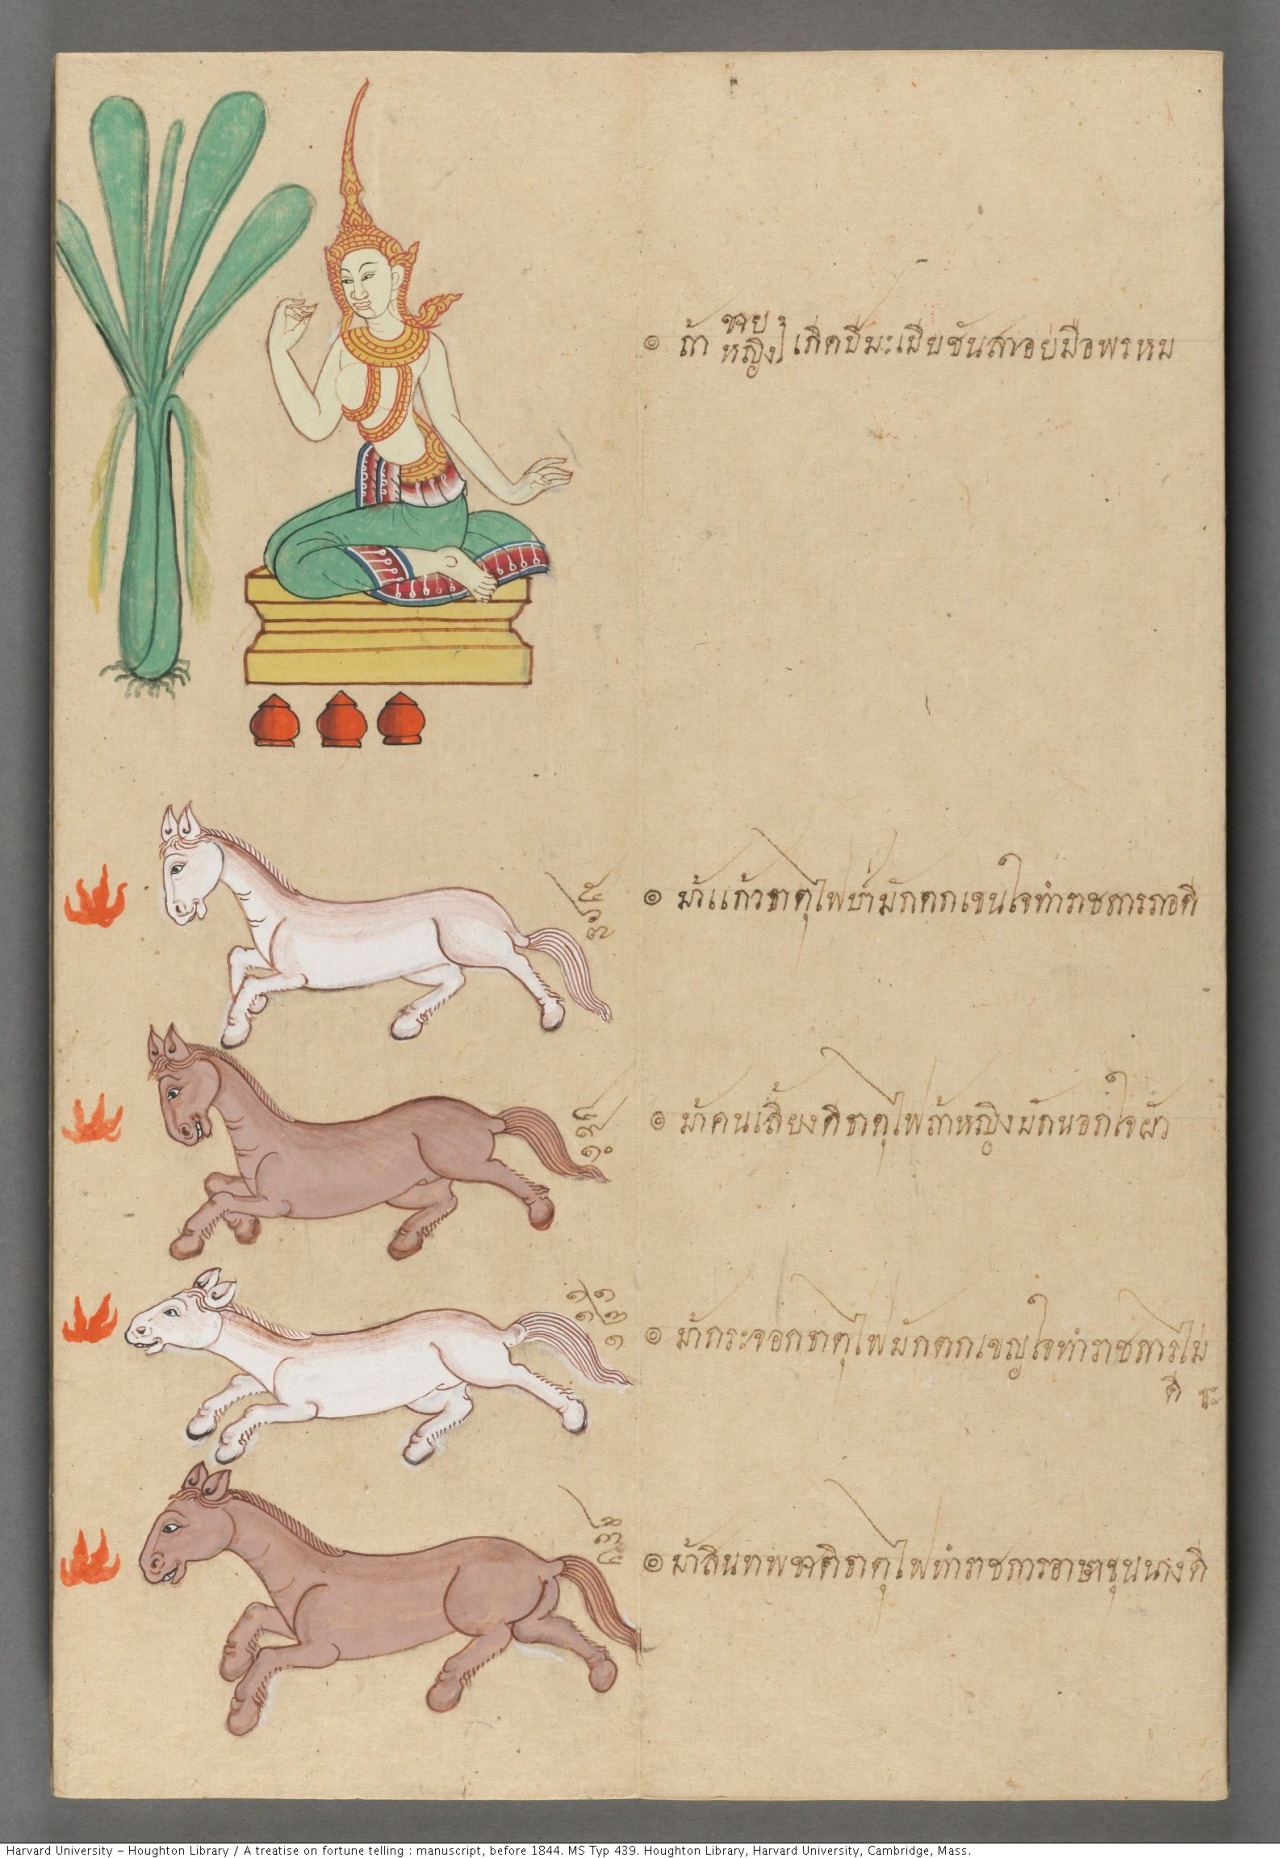 ๏ ถ้า ชาย หญิง เกิดปีมะเมียชันสาอยู่มือพรหม
๏ ม้าแก้วธาตุไฟ มักตกเขนใจทำราชการก่อดี
๏ ม้าคนเลี้ยงดีธาตุไฟถ้าหญิงมักนอกใจผัว
๏ ม้ากระจอกธาตุไฟมักตกเขญใจทำราชการไม่
ดี
๏ ม้าสินทพชาติธาตุไฟทำราชการอาษาขุนนางดี
Harvard University – Houghton Library / A treatise on fortune telling : manuscript, before 1844. MS Typ 439. Houghton Library, Harvard University, Cambridge, Mass.